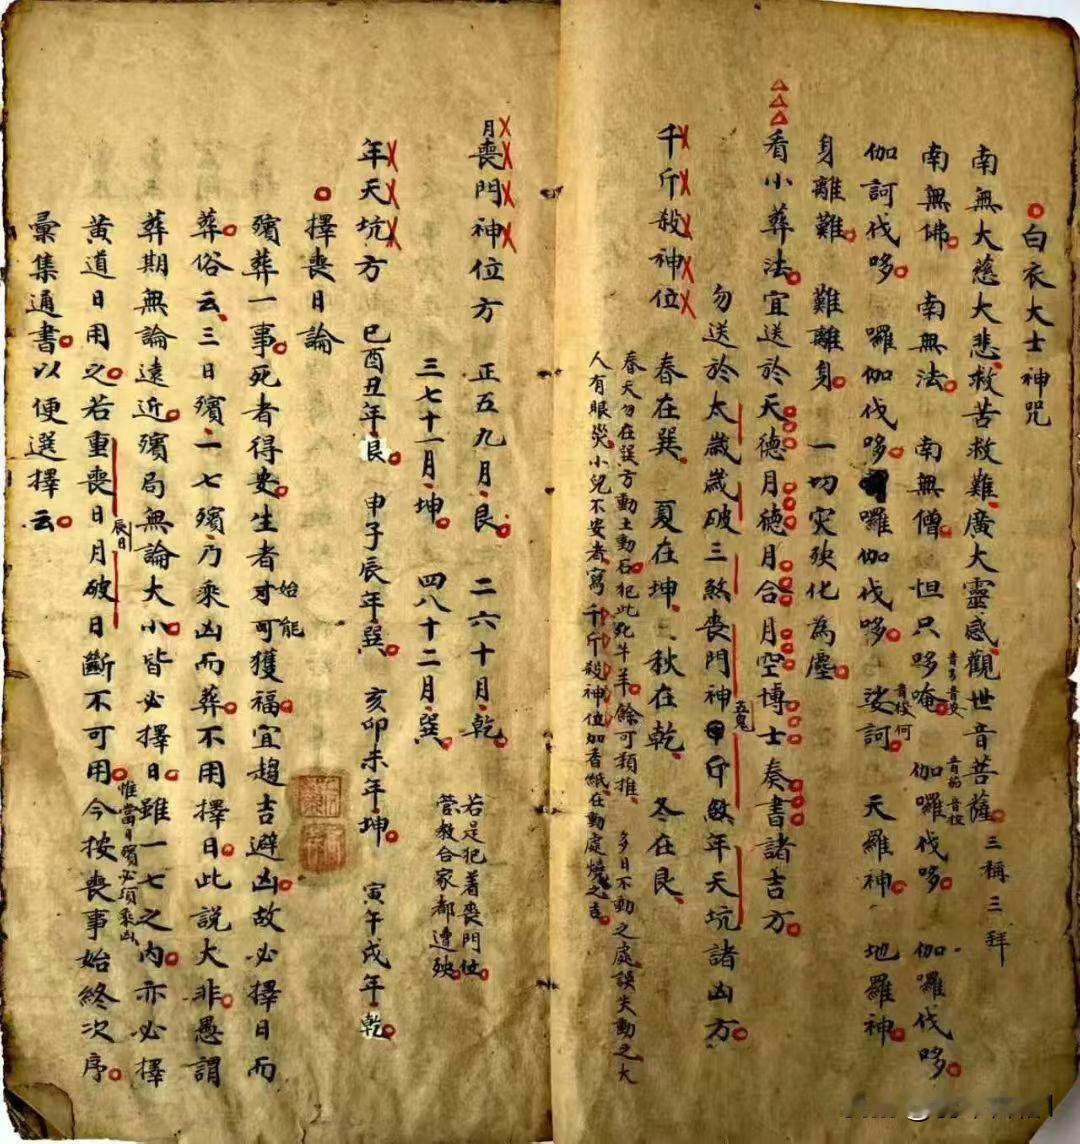 白衣大士神咒
南無大慈大悲救苦救難廣大靈感觀世音菩薩三稱三拜
南無佛 南無法 南無僧 怛只哆唵 伽囉伐哆 伽囉伐哆
伽訶伐哆 囉伽伐哆 囉伽伐哆 娑訶 天羅神 地羅神
身離難 難離身 一切灾殃化為塵
看小葬法宜送於天德月德月合月空博士奏書諸吉方
勿送於太歲歲破三煞喪門神五鬼千斤殺年天坑諸凶方
千斤殺神位 春在巽 夏在坤 秋在乾 冬在艮
春天勿在巽方動土動石犯此死牛羊餘可類推 多日不動之處誤失動之大
人有眼災小兒不安者寫千斤殺神位如香紙在動處燒之吉
月喪門神位方 正五九月艮 二六十月乾
三七十一月坤 四八十二月巽
若是犯著喪門位
管教合家都遭殃
年天坑方 巳酉丑年艮 申子辰年巽 亥卯未年坤 寅午戌年乾
擇喪日論
殯葬一事死者得安生者始能獲福宜趨吉避凶故必擇日而
葬俗云三日殯一七殯乃乘凶而葬不用擇日此說大非愚謂
葬期無論遠近殯局無論大小皆必擇日雖一七之內亦必擇
惟當日殯必須乘凶
黃道日用之若重喪日月破日斷不可用今按喪事始終次序
辰日
彙集通書以便選擇云